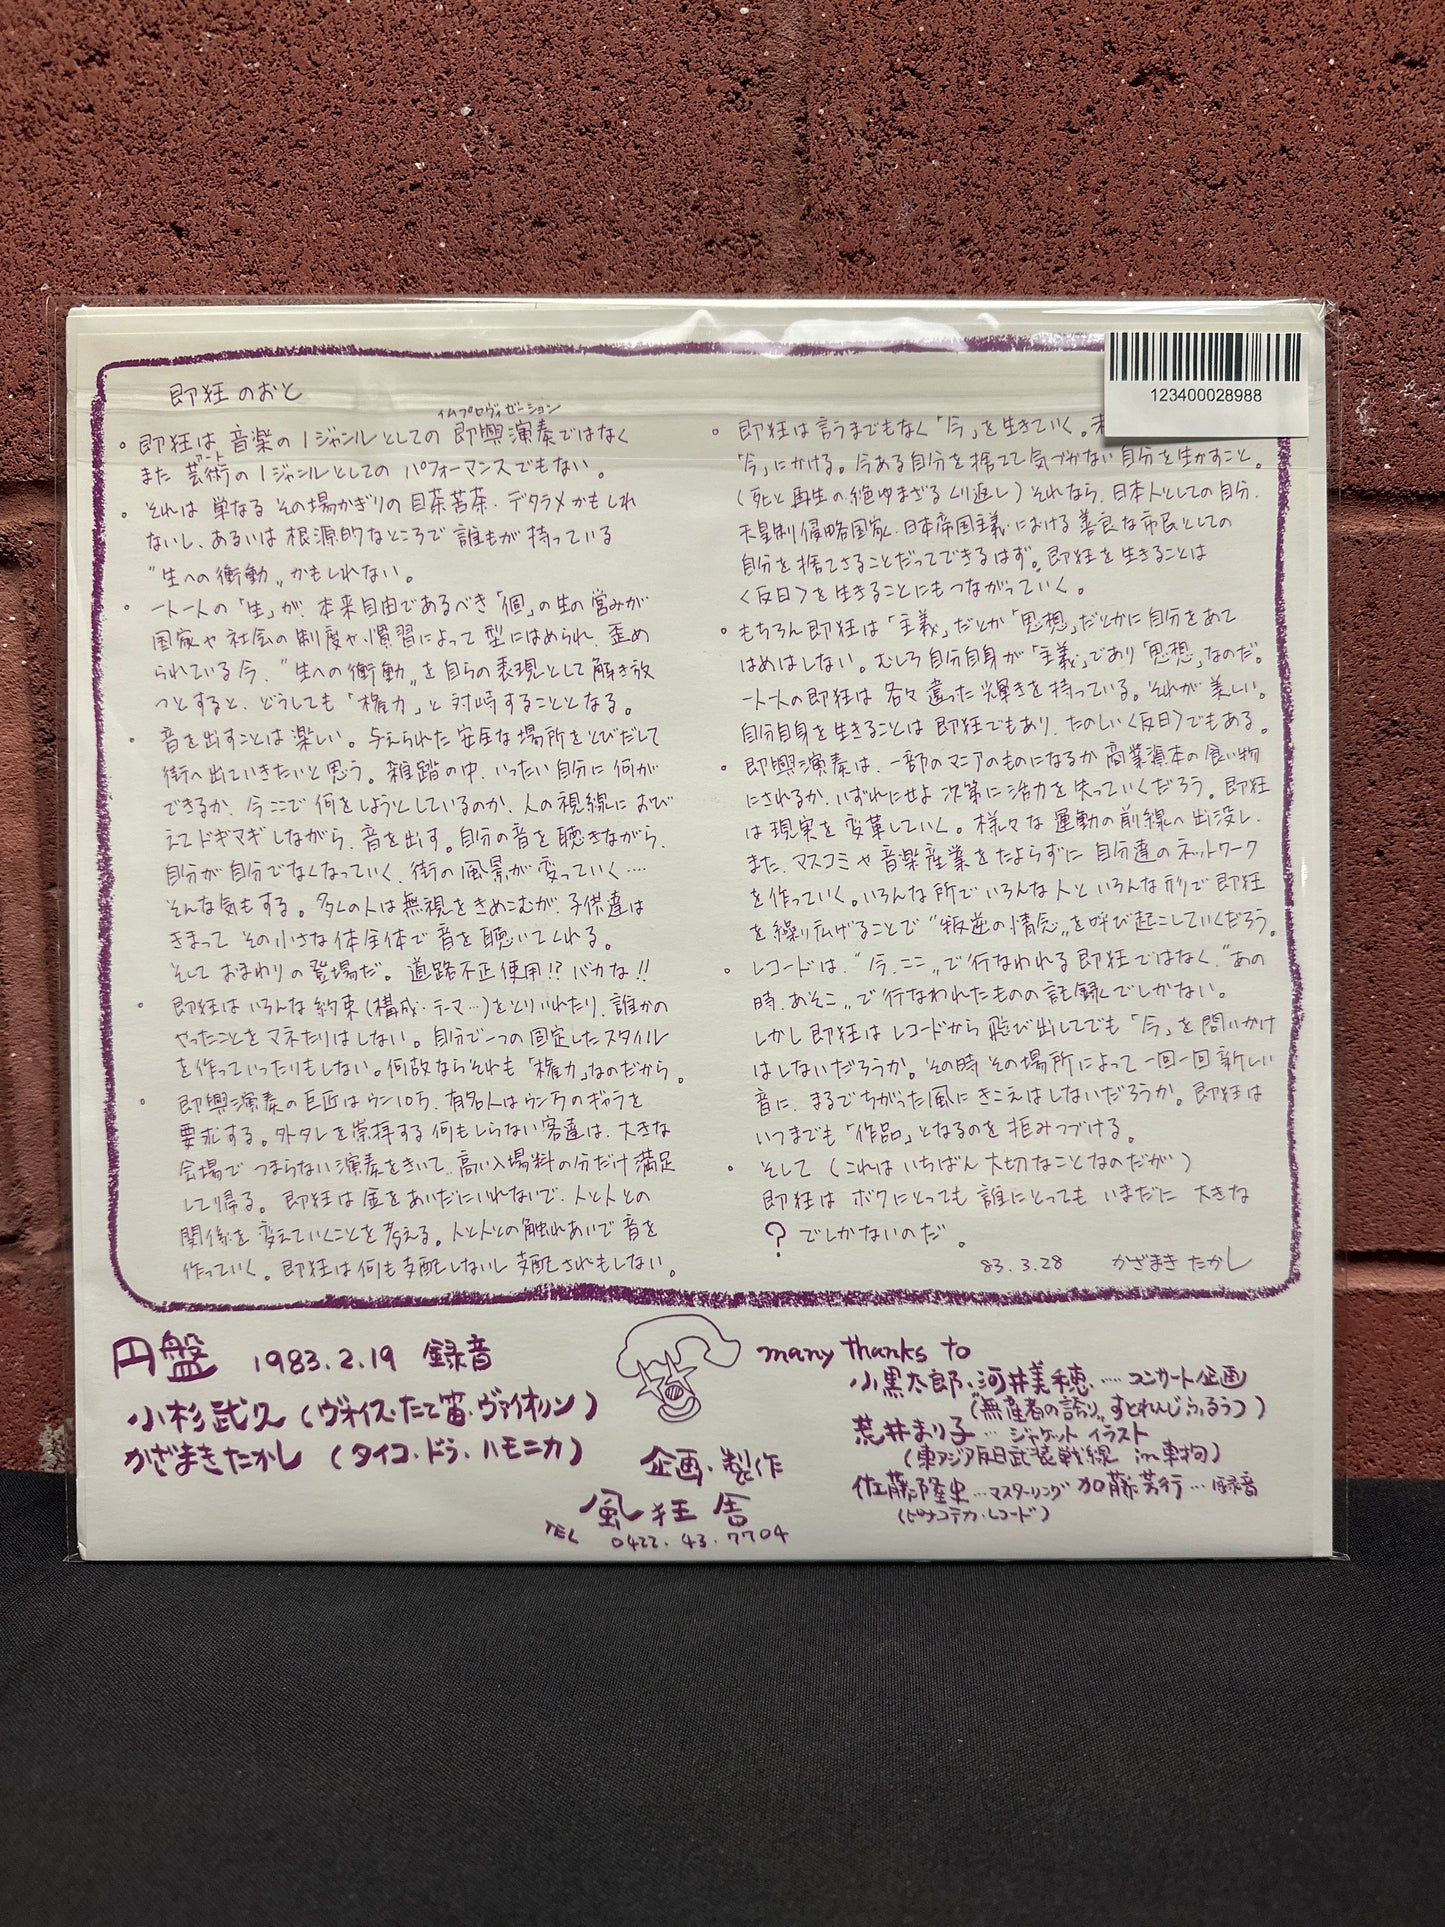 即狂 のおと
イムプロヴィゼーション
。即狂は 音楽の1ジャンルとしての 即興演奏ではなく
アート
また 芸術の1ジャンルとしての パフォーマンスでもない。
。それは 単なる その場かぎりの 目茶苦茶・デタラメかもしれ
ないし、あるいは 根源的なところで 誰もが 持っている
"生への衝動〟かもしれない。
。一人一人の「生」が、本来自由であるべき「個」の生の営みが
国家や社会の制度や慣習によって 型にはめられ、歪め
られている今、"生への衝動〟を自らの表現として解き放
つとすると、どうしても「権力」と対峙することとなる。
。音を出すことは楽しい。与えられた安全な場所をとびだして
街へ出ていきたいと思う。雑踏の中、いったい自分に何が
できるか、今ここで何をしようとしているのか、人の視線におび
えてドギマギしながら、音を出す。自分の音を聴きながら、
自分が自分でなくなっていく、街の風景が変っていく……
そんな気もする。多くの人は無視をきめこむが、子供達は
きまって その小さな体全体で音を聴いてくれる。
そして おまわりの登場だ。道路不正使用!? バカな!!
。即狂は いろんな約束(構成・テーマ…)をとりいれたり、誰かの
やったことをマネたりはしない。自分で一つの固定したスタイル
を作っていったりもしない。何故ならそれも「権力」なのだから。
。即興演奏の巨匠はウン10万、有名人はウン万のギャラを
要求する。外タレを崇拝する何もしらない客達は、大きな
会場で つまらない演奏をきいて、高い入場料の分だけ満足
して帰る。即狂は金をあいだにいれないで、人と人との
関係を変えていくことを考える。人と人との触れあいで音を
作っていく。即狂は何も支配しないし支配されもしない。
。即狂は言うまでもなく「今」を生きていく。
「今」にかける。今ある自分を捨てて気づかない自分を生かすこと。
(死と再生の絶ゆまざるくり返し)それなら、日本人としての自分、
天皇制侵略国家・日本帝国主義における善良な市民としての
自分を捨てさることだってできるはず。即狂を生きることは
〈反日〉を生きることにもつながっていく。
。もちろん即狂は「主義」だとか「思想」だとかに自分をあて
はめはしない。むしろ自分自身が「主義」であり「思想」なのだ。
一人一人の即狂は各々違った輝きを持っている。それが美しい。
自分自身を生きることは即狂でもあり、たのしい〈反日〉でもある。
。即興演奏は、一部のマニアのものになるか商業資本の食い物
にされるか、いずれにせよ次第に活力を失っていくだろう。即狂
は現実を変革していく。様々な運動の前線へ出没し、
また、マスコミや音楽産業をたよらずに自分達のネットワーク
を作っていく。いろんな所でいろんな人といろんな形で即狂
を繰り広げることで"叛逆の情念〟を呼び起こしていくだろう。
。レコードは、"今、ここ〟で行なわれる即狂ではなく、"あの
時、あそこ〟で行なわれたものの記録でしかない。
しかし即狂はレコードから飛び出してでも「今」を問いかけ
はしないだろうか。その時その場所によって一回一回新しい
音に、まるでちがった風にきこえはしないだろうか。即狂は
いつまでも「作品」となるのを拒みつづける。
。そして(これはいちばん大切なことなのだが)
即狂は ボクにとっても誰にとっても いまだに 大きな
? でしかないのだ。
83.3.28 かざまき たかし
123400028988
円盤 1983.2.19 録音
小杉武久(ヴォイス・たて笛・ヴァイオリン)
かざまきたかし(タイコ・ドラ・ハモニカ)
企画・製作
風狂舎
TEL 0422.43.7704
many thanks to
小黒太郎・河井美穂……コンサート企画
("無産者の誇り〟すとれんじふるうつ)
荒井まり子…ジャケットイラスト
(東アジア反日武装戦線 in 東拘)
佐藤隆史…マスターリング 加藤芳行…録音
(ピナコテカ・レコード)